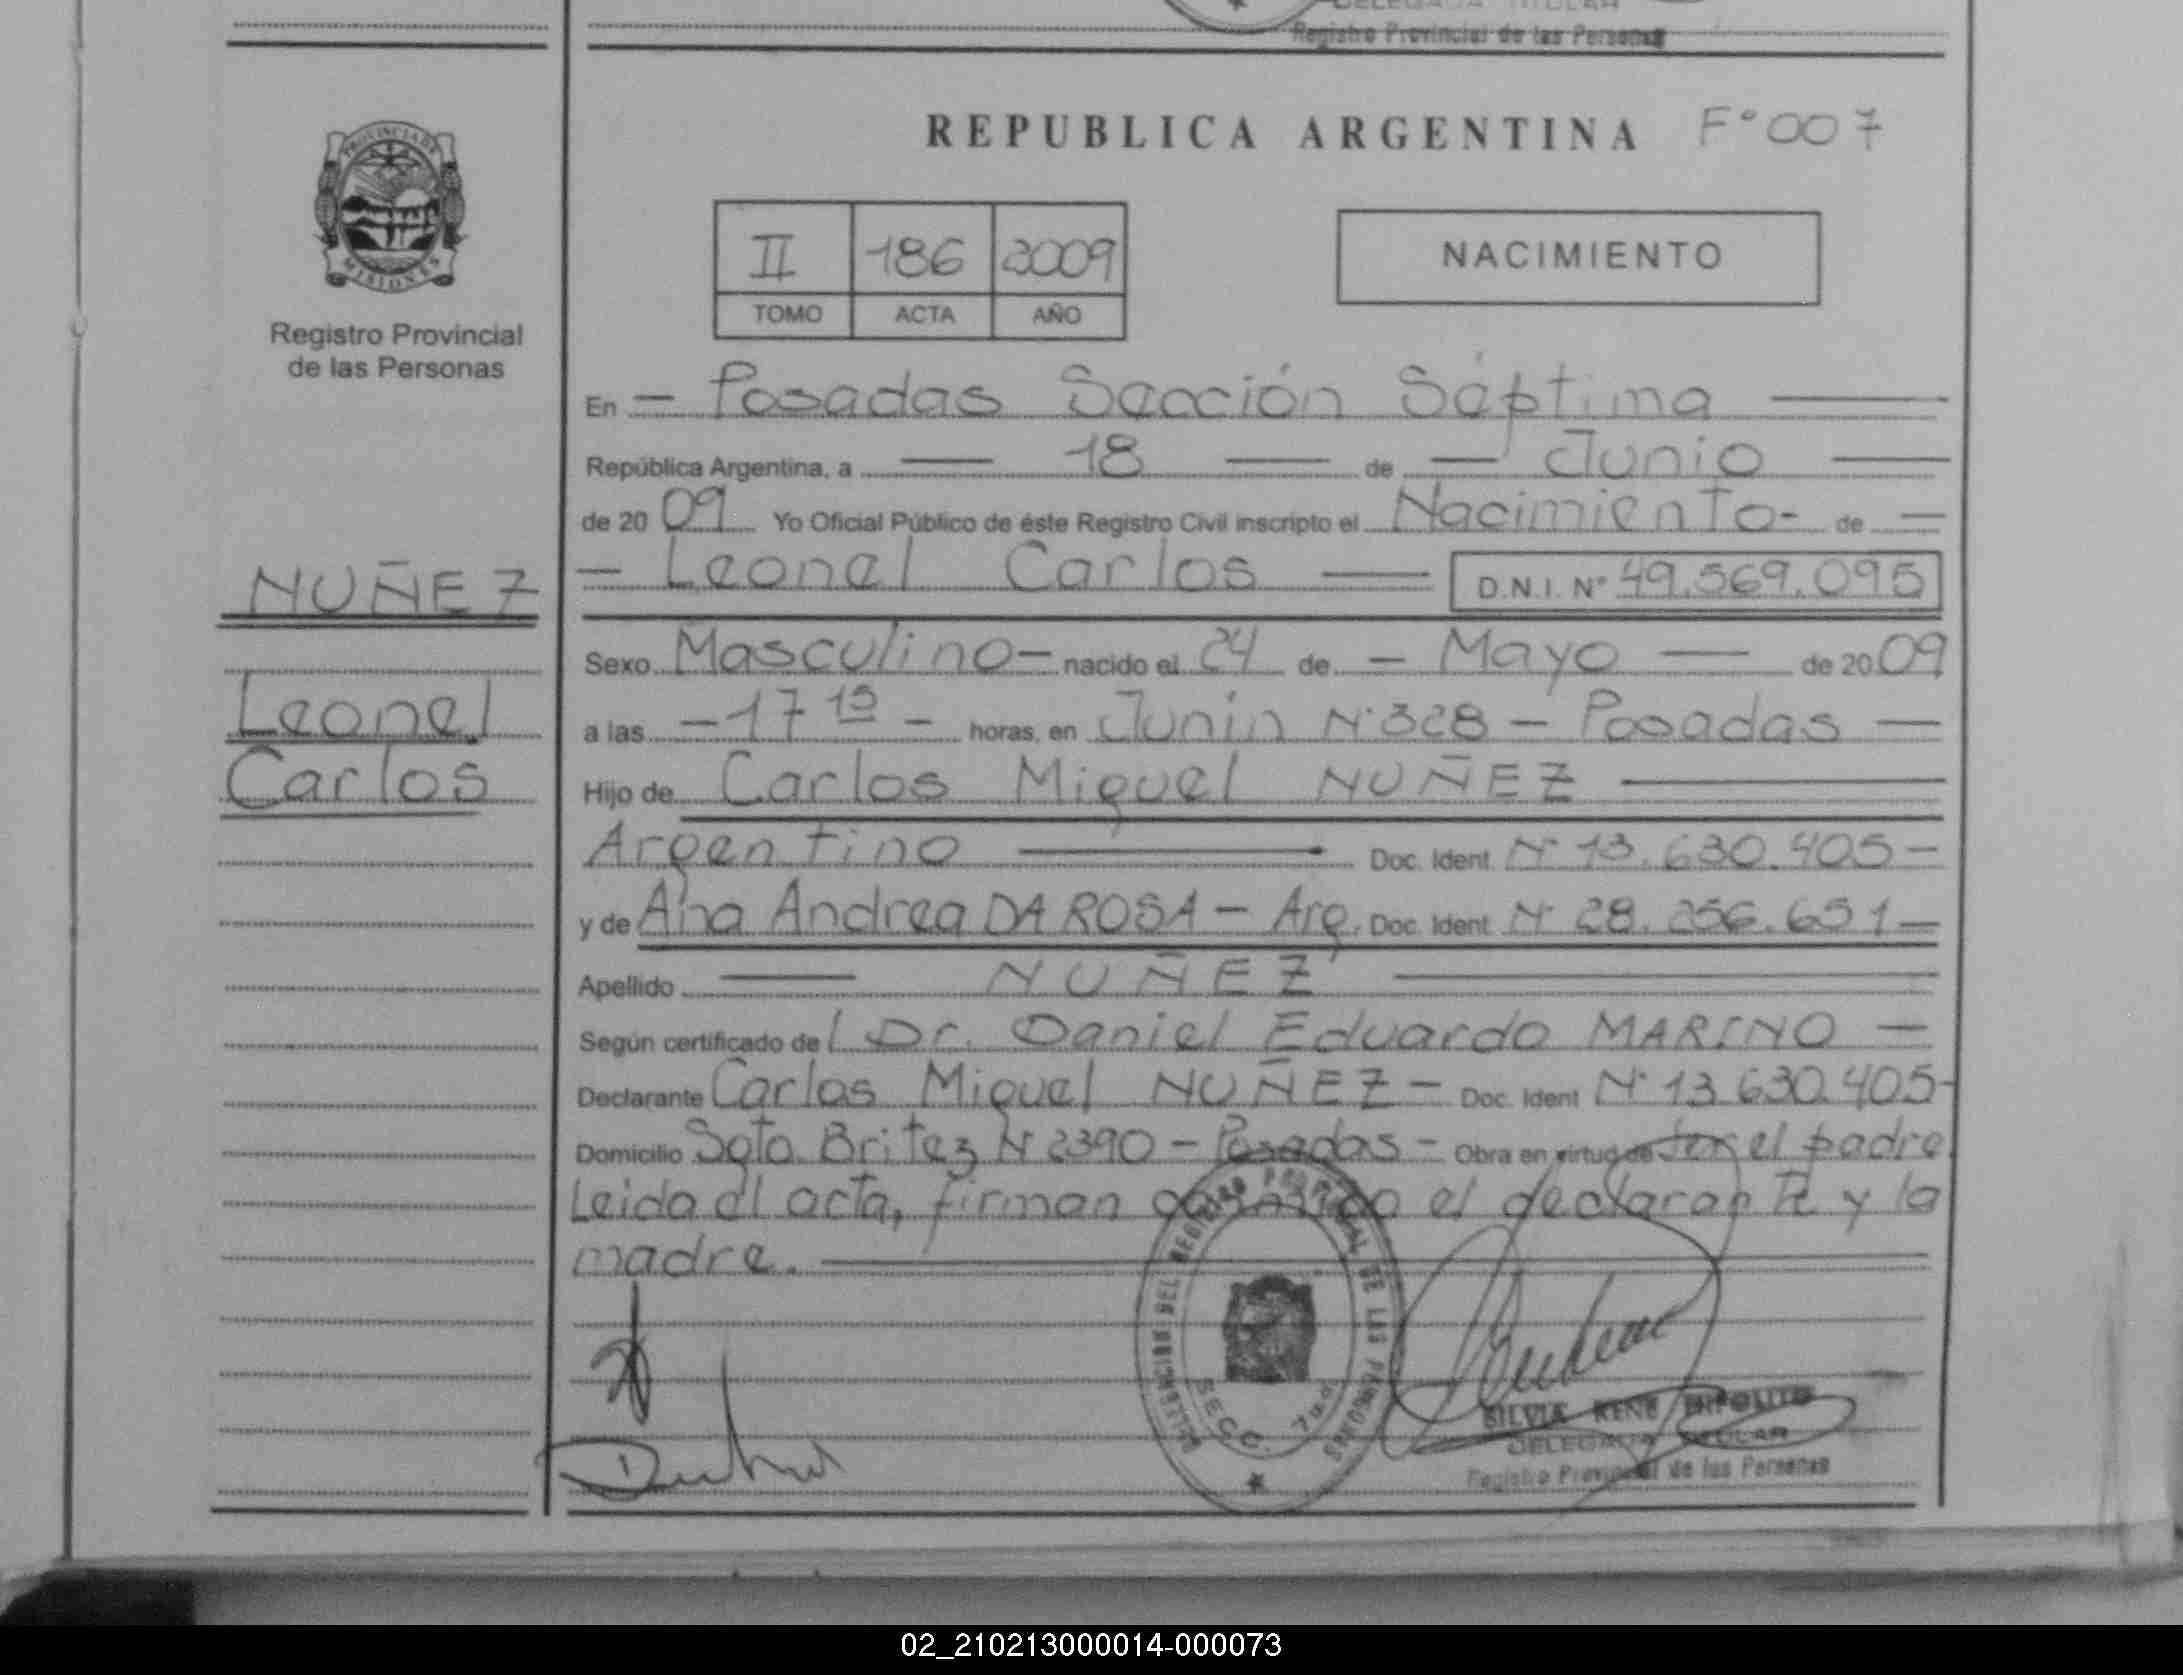 DELEGADA TITULAR
Registro Provincial de las Personas
PROVINCIA DE
MISIONES
Registro Provincial
de las Personas
REPUBLICA ARGENTINA F° 007
II 186 2009
TOMO ACTA AÑO
NACIMIENTO
En — Posadas Sección Séptima —
República Argentina, a — 18 — de — Junio —
de 2009 Yo Oficial Público de éste Registro Civil inscripto el Nacimiento - de —
NUÑEZ
— Leonel Carlos — D.N.I. N° 49.569.095
Sexo Masculino — nacido el 24 de — Mayo — de 2009
Leonel
a las — 17 15 — horas, en Junin N° 328 — Posadas —
Carlos
Hijo de Carlos Miguel NUÑEZ —
Argentino — Doc. Ident. N° 13.630.405 —
y de Ana Andrea DA ROSA — Arg. Doc. Ident. N° 28.256.651 —
Apellido — NUÑEZ —
Según certificado del Dr. Daniel Eduardo MARINO —
Declarante Carlos Miguel NUÑEZ — Doc. Ident N° 13.630.405 -
Domicilio Soto Britez N° 2390 — Posadas — Obra en virtud de ser el padre
Leida el acta, firman conmigo el declarante y la
madre. —
DELEGACION DEL REGISTRO PROVINCIAL DE LAS PERSONAS
SECC. 7ma
SILVIA RENE HIPOLITO
DELEGADA TITULAR
Registro Provincial de las Personas
02_210213000014-000073